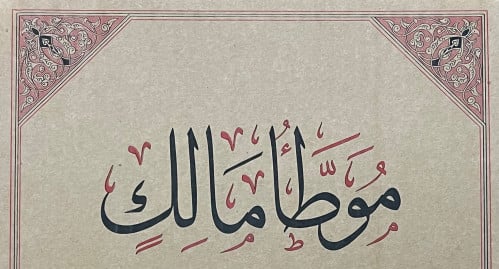 مُوَطَّأُ مَالِكٍ